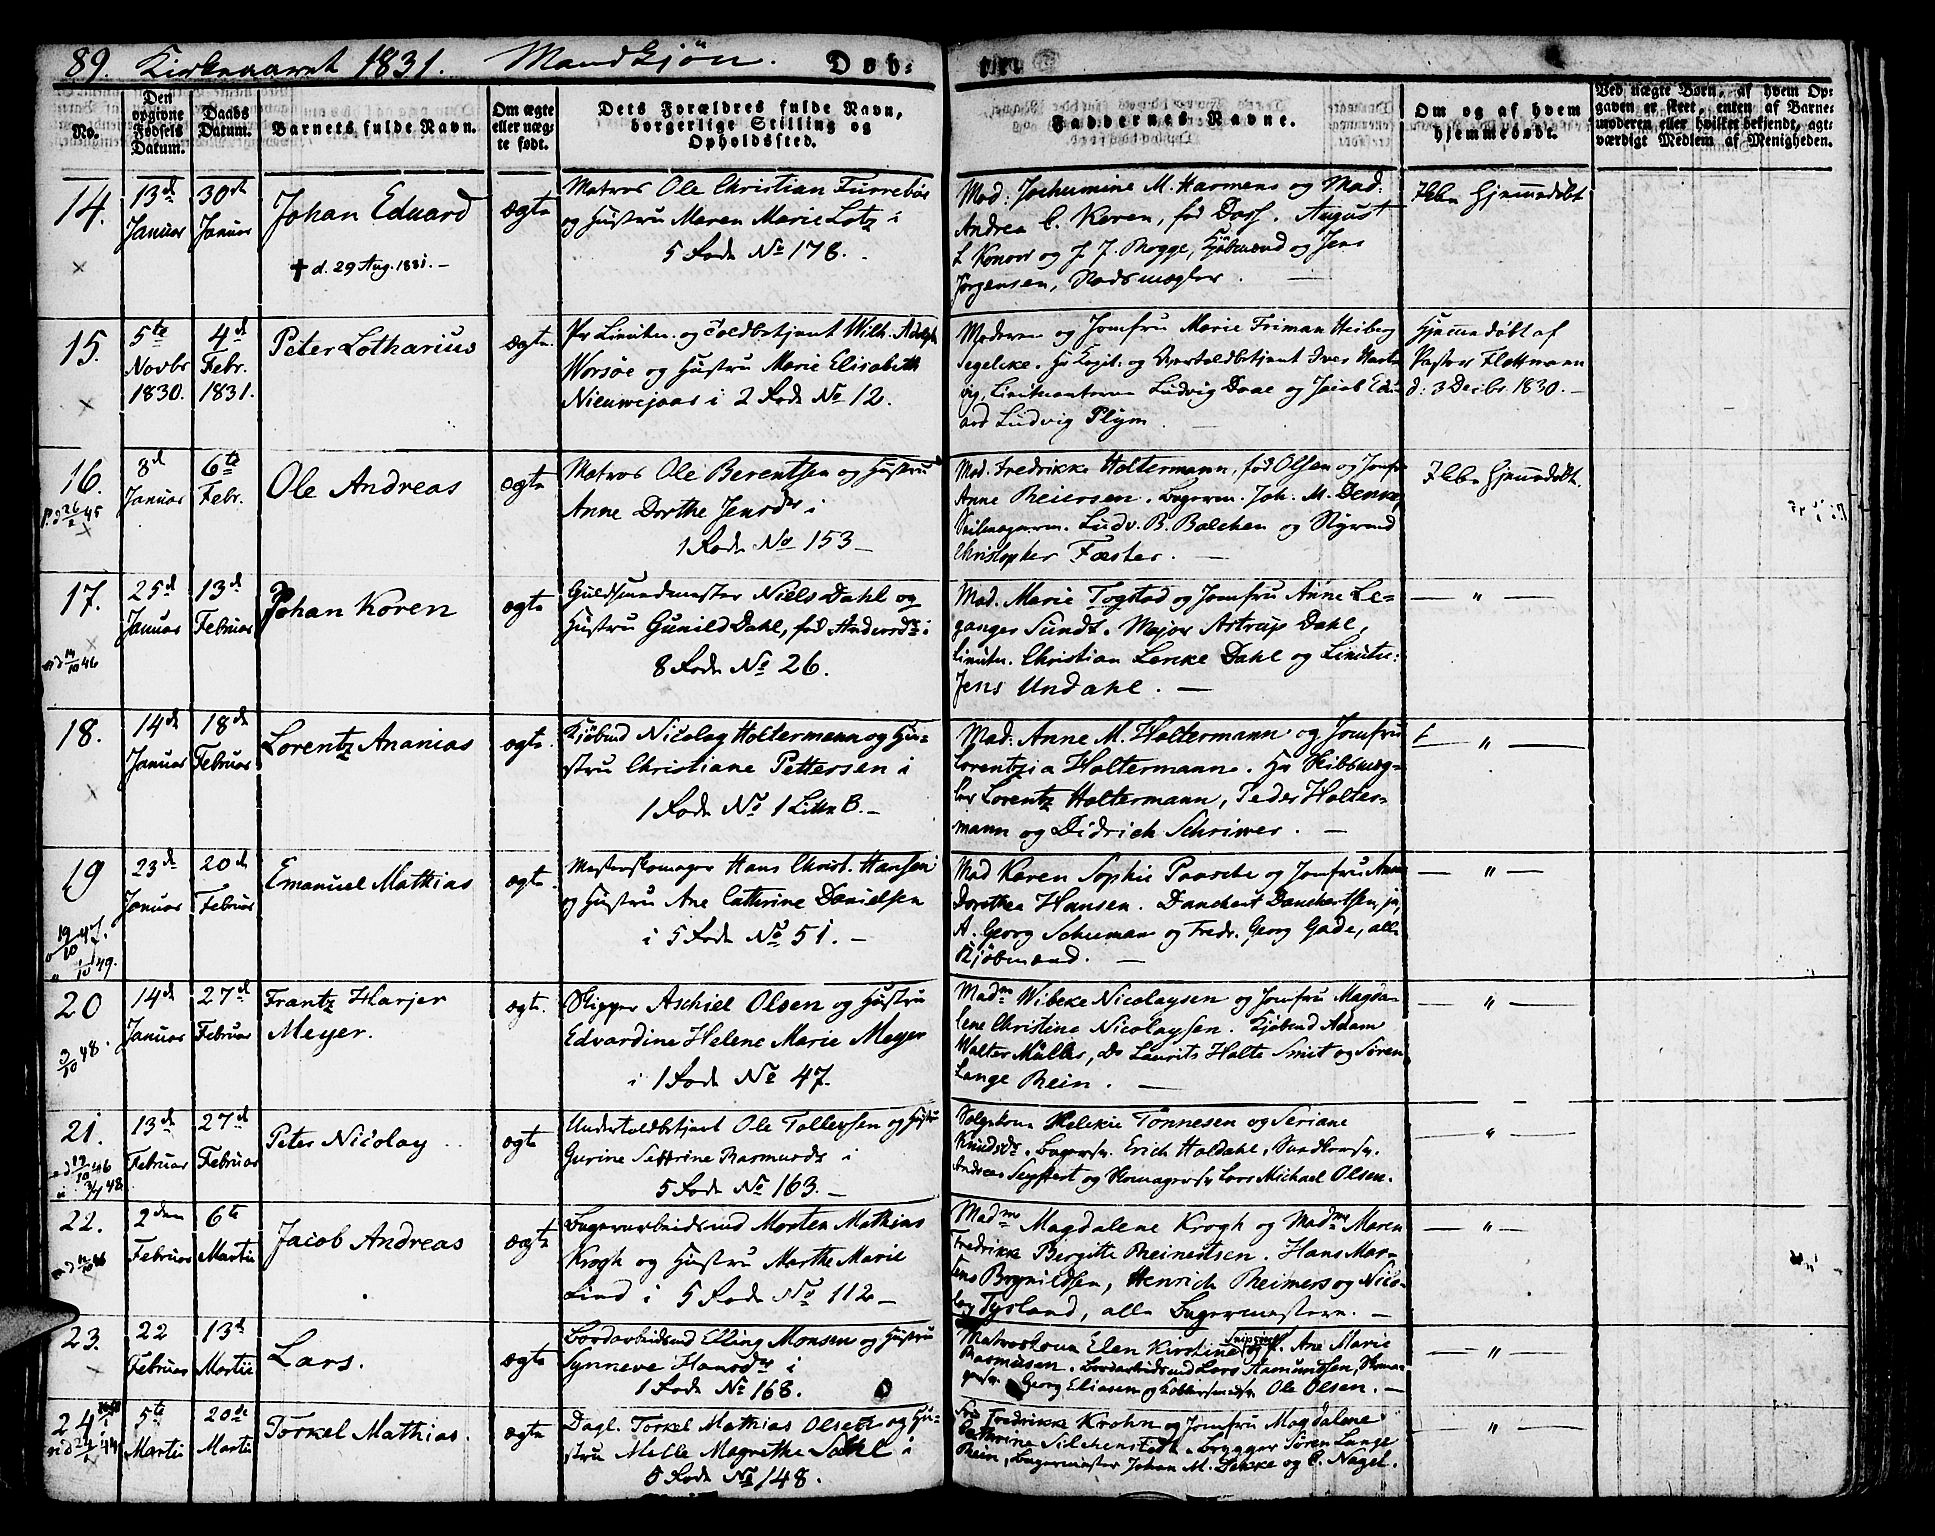 89. Kirkeaaret 1831. Mandkjøn. Døb:
No.
Den opgivne Fødsels Datum.
Daabs Datum.
Barnets fulde Navn.
Om ægte eller næg- te født.
Dets Forældres fulde Navn, borgerlige Stilling og Opholdssted.
Faddernes Navne.
Om og af hvem hjemmedøbt.
Ved uægte Børn, af hvem Op- gaven er skeet, enten af Barne- moderen eller hvilket bekjendt, agt- værdigt Medlem af Menigheden.
14. 13de Januar 30te Januar
Johan Eduard
✝ d. 29 Aug. 1831. —
ægte
Matros Ole Christian Furrebøe
og Hustru Maren Marie Lotz i
5 Rode No 178.
Mad. Jochumine M. Harmens og Mad.
Andrea C. Koren, fød August
L Konow og J. J. Rogge, Kjøbmænd og Jens
Jørgensen,
Ikke Hjemmedøbt
15. 5te Novbr 1830. 4de Febr. 1831.
Peter Lotharius
ægte.
Pr Lieutn. og Toldbetjent Wilh. Adolph
Worsøe og Hustru Marie Elisabeth
Nieuwejaar i 2 Rode No 12.
Moderen og Jomfru Marie Friman Heiberg
Segelcke. Hr Capit. og Overtoldbetjent Iver
Lieutnanterne Ludvig Daae og Jacob Edu
ard Ludvig Plym
Hjemmedøbt af
Pastor Flottmann
d: 3 Decbr 1830. —
16. 8de Januar 6te Febr.
Ole Andreas
ægte
Matros Ole Berentsen og Hustru
Anne Dorthe Jensdr i
1 Rode No 153 —
Mad. Fredrikke Holtermann, fød Olsen og Jomfr
Anne Reiersen. Bagerm. Joh. M. Dencke,
Seilmagerm. Ludv. B. Balchen og
Christopher Fæster. —
Ikke Hjemmedøbt.
17. 25de Januar 13de Februar
Johan Koren
ægte
Guldsmedmester Niels Dahl og
Hustru Gunild Dahl, fød Andersdr i
8 Rode No 26.
Mad. Marie Togstad og Jomfru Anne Le-
ganger Sundt. Major Astrup Dahl,
Lieutn. Christian Lerche Dahl og Lieutn:
Jens Undahl. —
— " —
18. 14de Januar 18de Februar
Lorentz Ananias
ægte.
Kjøbmd Nicolay Holtermann og Hu-
stru Christiane Pettersen i
1 Rode No 1 Littr B. —
Mad: Anne M. Holtermann og Jomfru
Lorentzia Holtermann. Hr Skibsmæg-
ler Lorentz Holtermann, Peder Holter-
mann og Didrich Schriwer. —
— " —
19 23de Januar 20de Februar
Emanuel Mathias
ægte.
Mesterskomager Hans Christ. Hansen
og Hustru Ane Cathrine Danielsen
i 5 Rode No 51. —
Mad Karen Sophie Paasche og Jomfru Anne
Dorothea Hansen. Danchert Danchertsen jr,
A. Georg Schuman og Fredr. Georg Gade, alle
Kjøbmænd. —
— " —
20 14de Januar 27de Februar
Frantz Harjer
Meyer.
ægte.
Skipper Aschiel Olsen og Hustru
Edvardine Helene Marie Meyer
i 1 Rode No 47.
Madm Wibeke Nicolaysen og Jomfru Magda-
lene Christine Nicolaysen. Kjøbmd Adam
Walter Müller, Do Laurits Holte Smit og Søren
Lange Rein. —
— " —
21. 13de Februar 27de Februar
Peter Nicolay
ægte
Undertoldbetjent Ole Tollefsen og Hustru
Gurine Settrine Rasmusdr i
5 Rode No 163. —
Tønnesen og Seriane
Knudsdr. Bagersv. Erich Haldahl,
Andreas Seyffert og Skomagersv Lars Michael Olsen.
— " —
22. 2den Februar 6te Martii
Jacob Andreas
ægte
Bagerarbeidsmd Morten Mathias
Krogh og Hustru Marthe Marie
Lind i 5 Rode No 112 —
Madme Magdalene Krogh og Madme Maren
Fredrikke Birgitte Reinertsen. Hans Mor-
tens Bognildsen, Henrich Reimers og Nico-
lay Tysland, alle Bagermestere. —
— " —
23. 22 Februar 13de Martii
Lars.
ægte
Bordarbeidsmd Elling Monsen og Hustru
Synneve Hansdr i
1 Rode No 168.
Matroskona Elen Kirstine og J. Ane Marie
Rasmusen. Bordarbeidsmd Lars Aamundsen, Skoma-
gersv Georg Eliasen og Ole Olsen. —
— " —
24 5te Martii 20de Martii
Torkel Mathias.
ægte
Dagl. Torkel Mathias Olsen og Hu-
stru Melle Magrethe Dahl i
5 Rode No 148.
Fredrikke Krohn og Jomfru Magdalene
Cathrine Brygger Søren Lange
Rein, Bagermester Johan M. Dekke og C. Nagel.
"